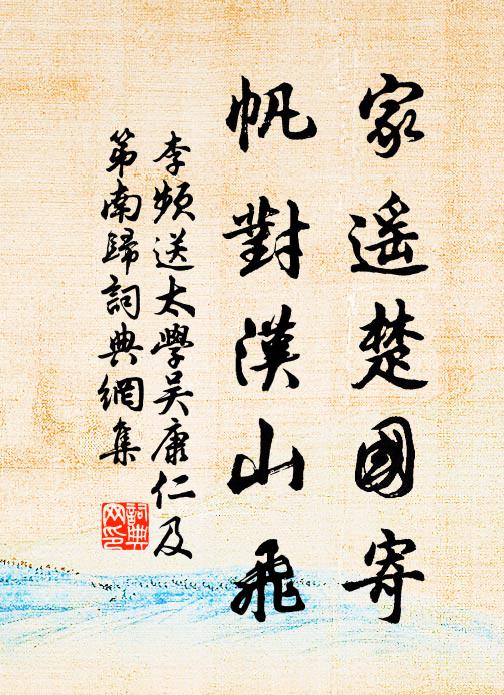 家遥楚國寄
帆對漢山飛
李頻送太學吴康仁及
第南歸詞典網集
詞典
网印